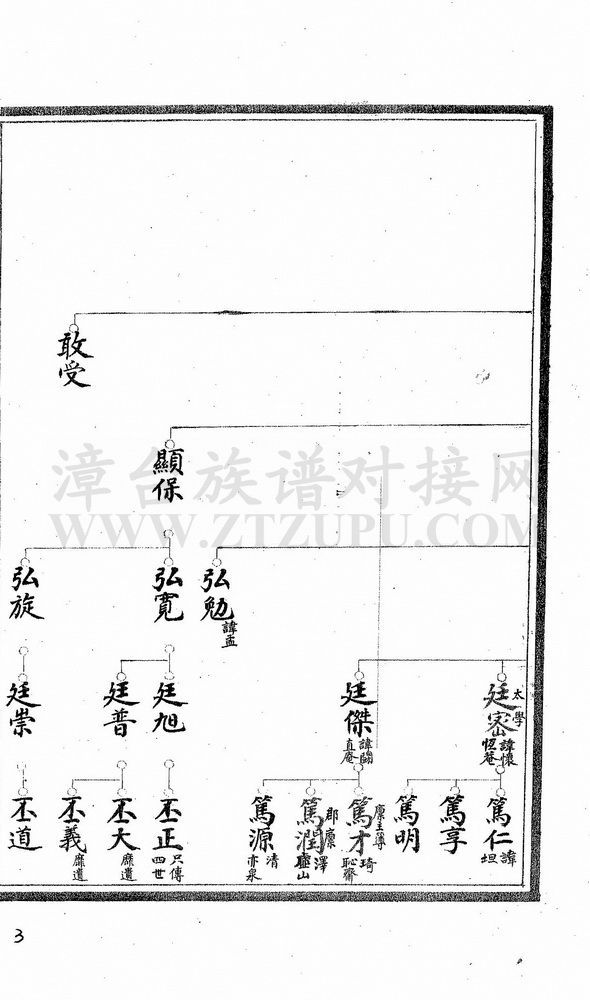 敢受
顯保
弘勉
諱孟
弘寬
弘旋
太學
廷密
諱懷
恆菴
廷傑
直菴
廷旭
廷普
廷崇
篤仁
諱坦
篤享
篤明
篤才
琦
恥齋
篤潤
郡廩
澤
篤源
清
亦泉
丕正
只傳四世
丕大
靡遺
丕義
靡遺
丕道
漳台族谱对接网
WWW.ZTZUPU.COM
3